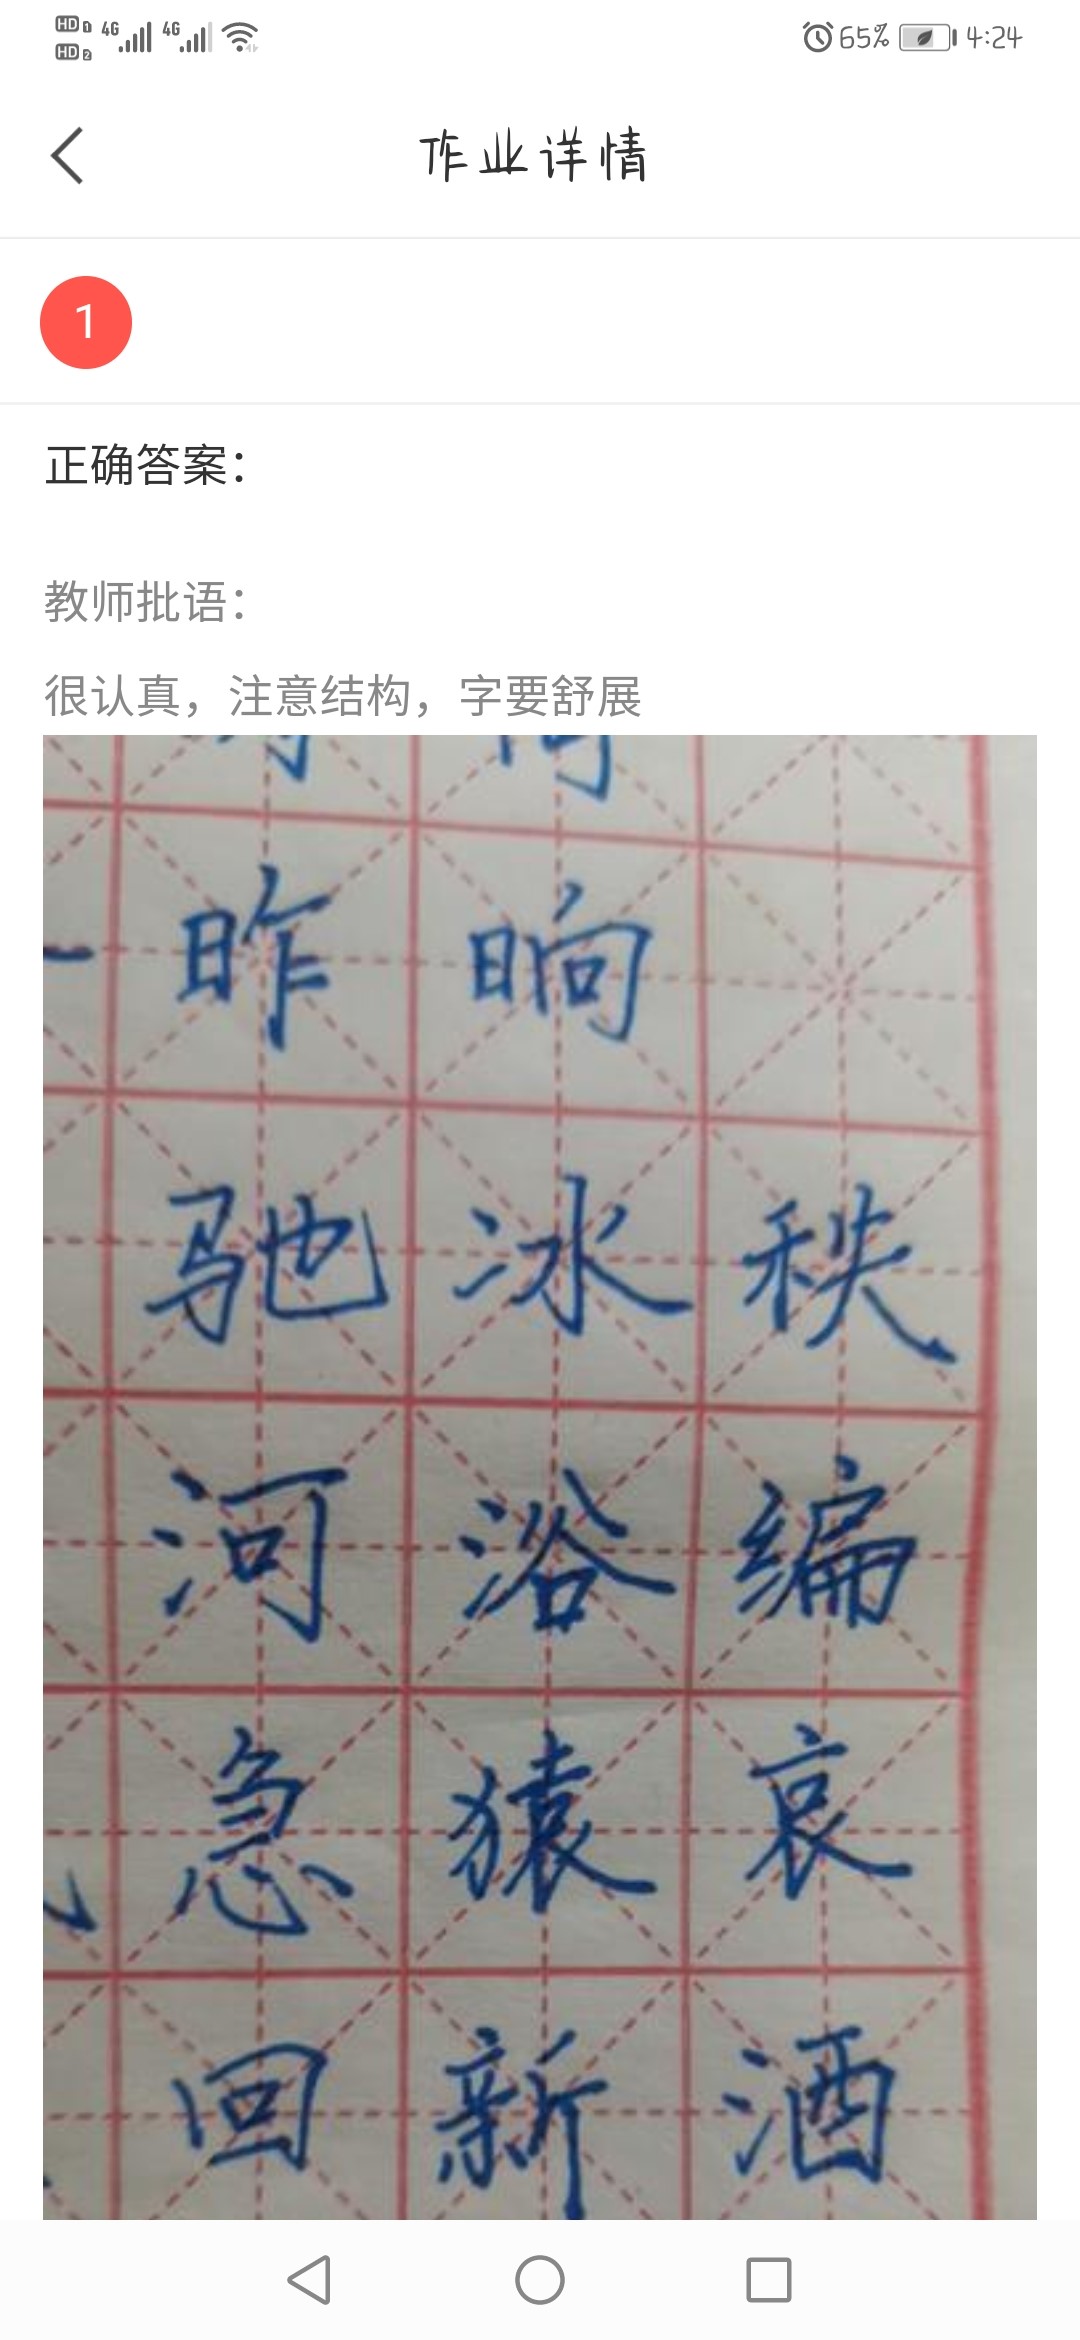 HD 1 4G 4G
HD 2
65% 4:24
作业详情
1
正确答案：
教师批语：
很认真，注意结构，字要舒展
昨 晌
驰 冰 秩
河 浴 编
急 猿 哀
回 新 酒